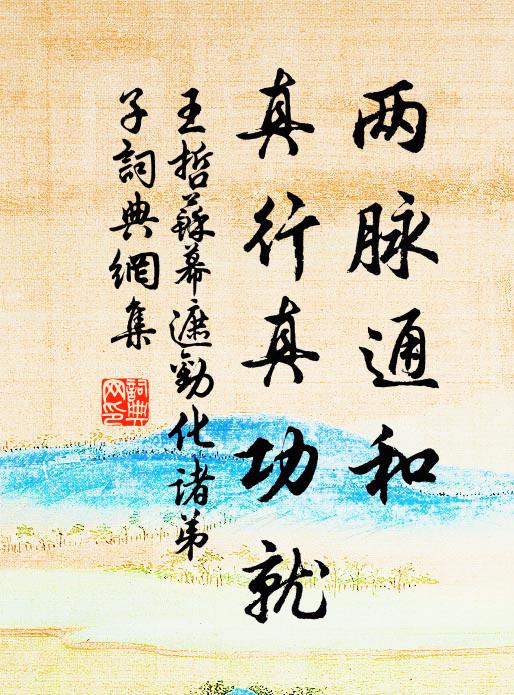 两脉通和
真行真功就
王哲蘇幕遮勸化諸弟
子詞典網集
詞典
网印